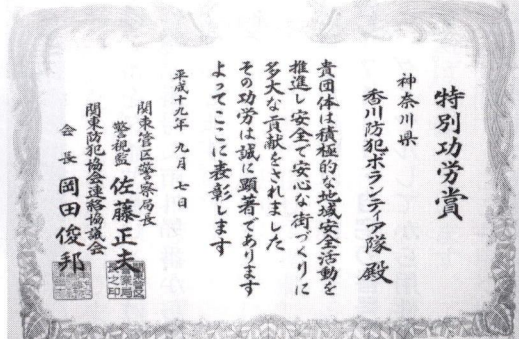 特別功労賞
神奈川県
香川防犯ボランティア隊 殿
貴団体は積極的な地域安全活動を
推進し安全で安心な街づくりに
多大な貢献をされました
その功労は誠に顕著であります
よってここに表彰します
平成十九年 九月 七日
関東管区警察局長
警視監 佐藤正夫
関東防犯協会連絡協議会
会長 岡田俊邦